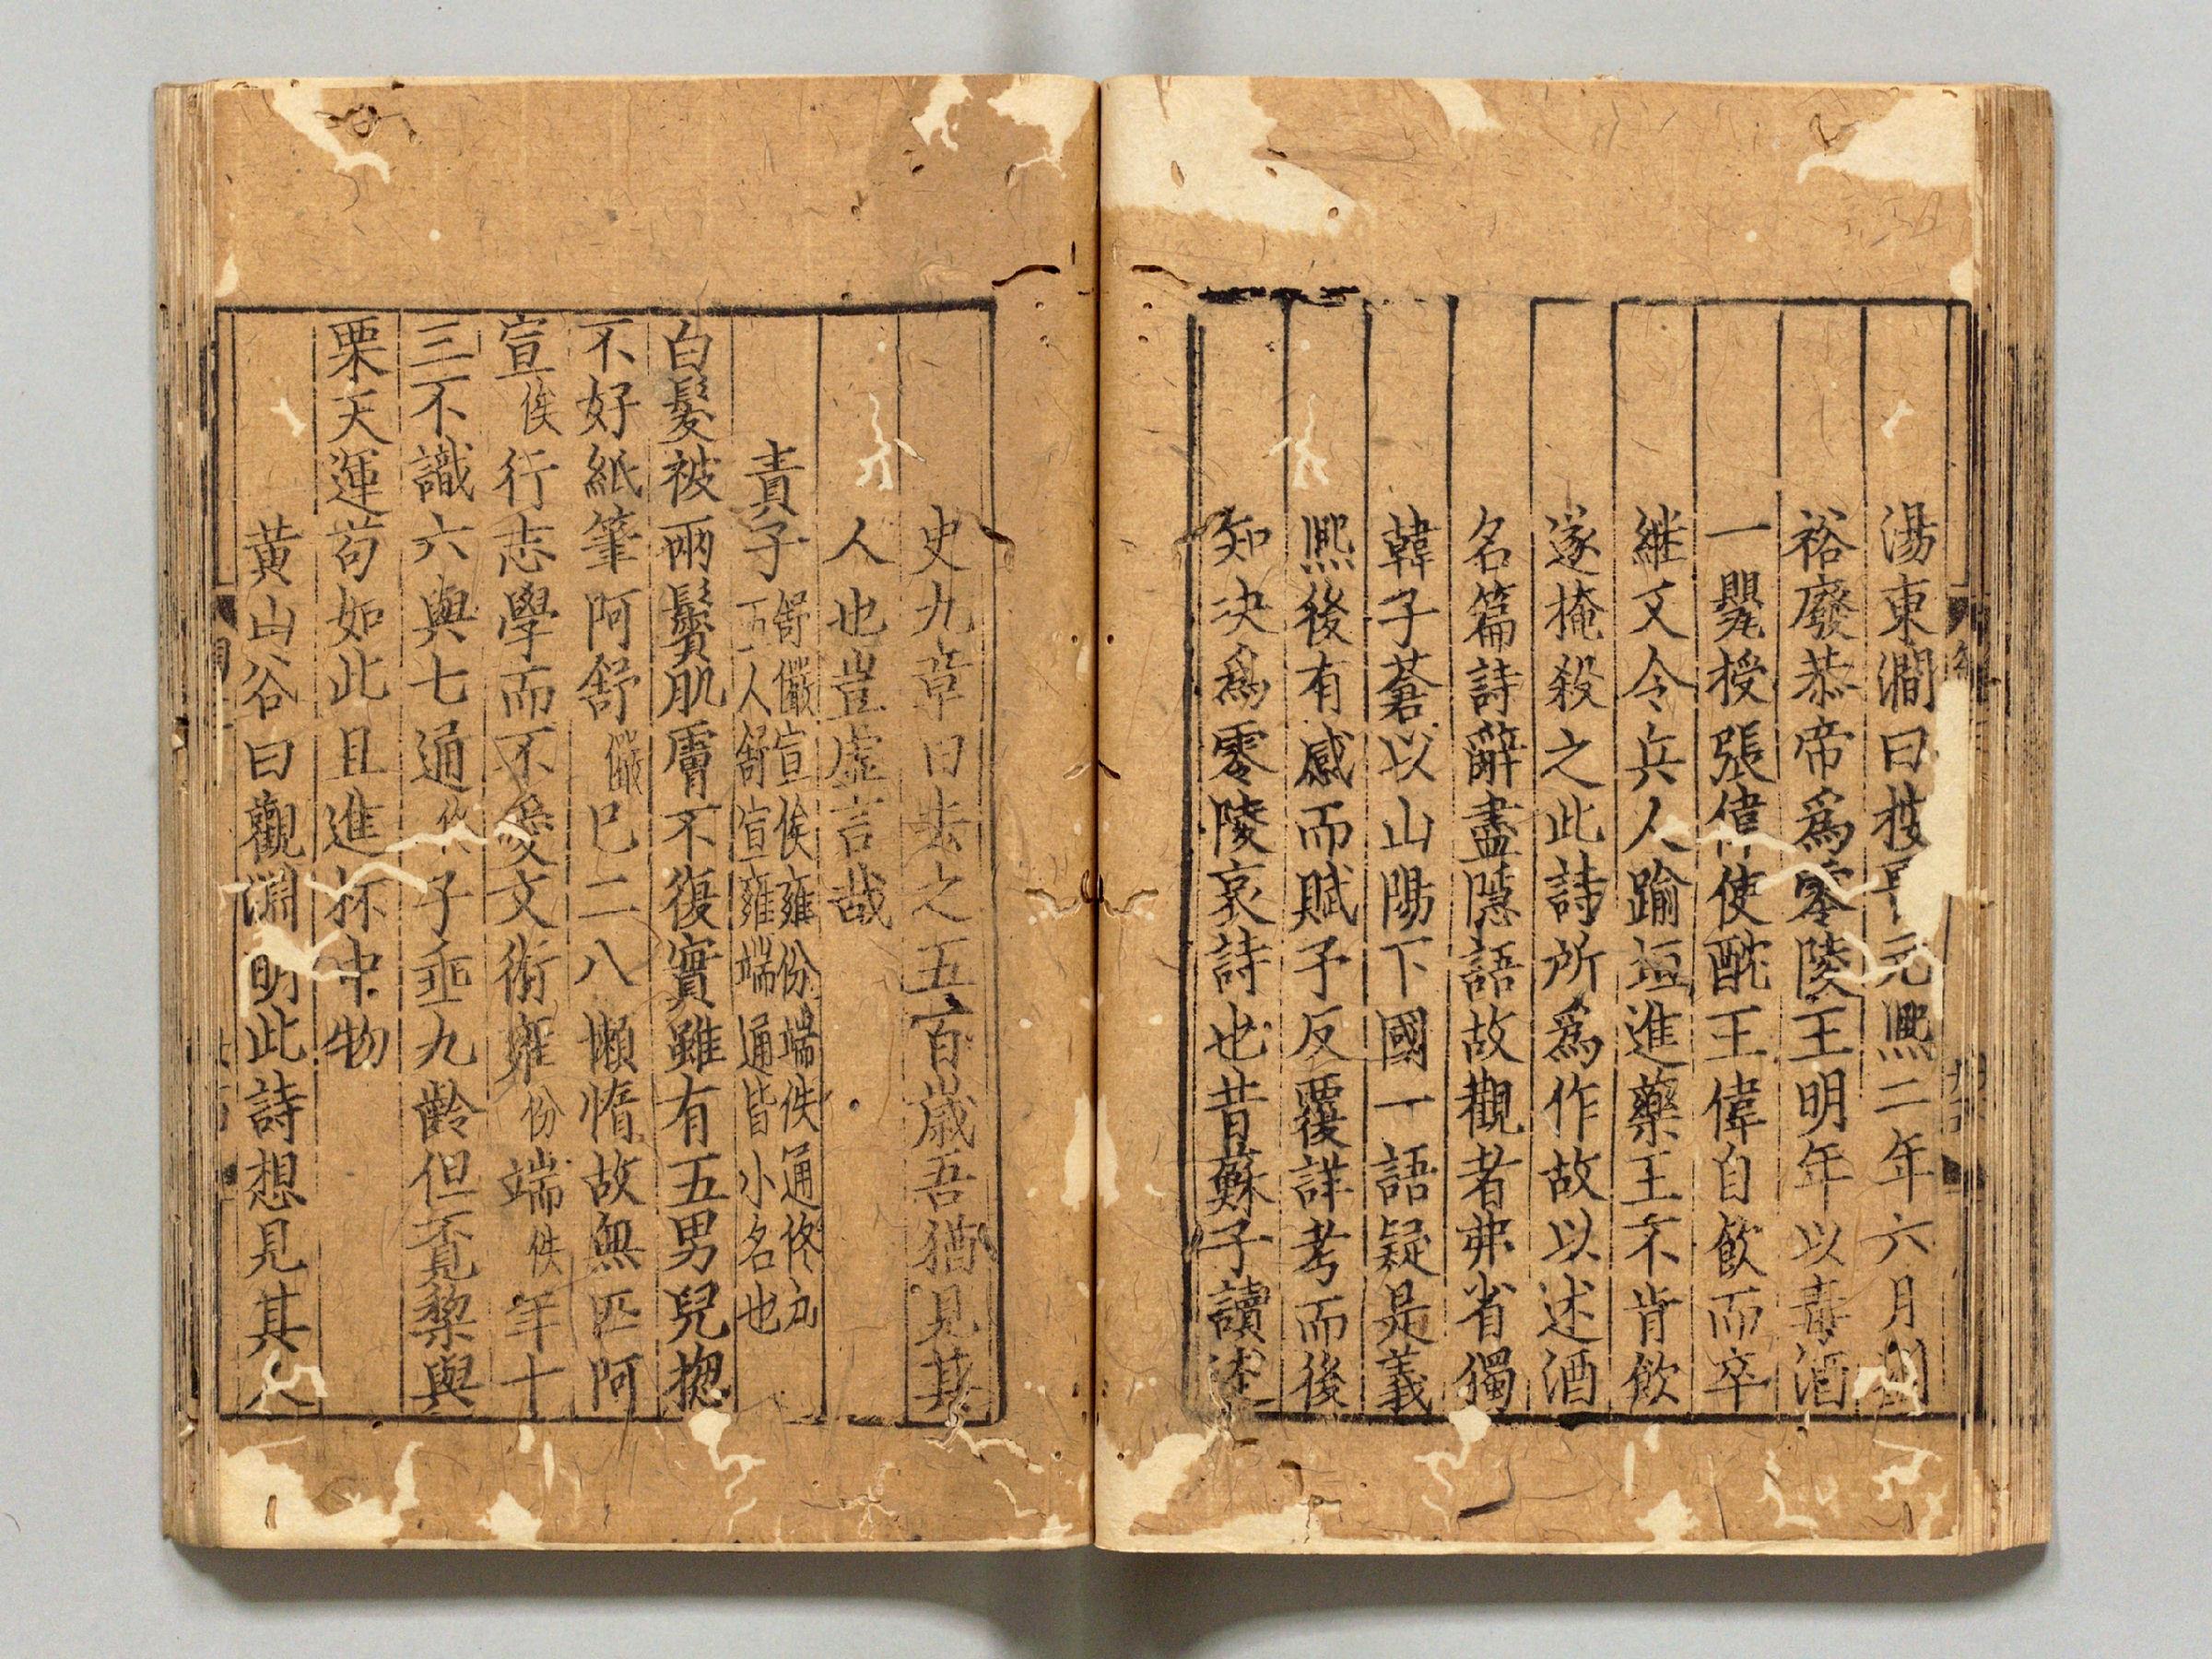 湯東澗曰按晉元熙二年六月劉
裕廢恭帝爲零陵王明年以毒酒
一甖授張偉使酖王偉自飲而卒
継又令兵人踰垣進藥王不肯飲
遂掩殺之此詩所爲作故以述酒
名篇詩辭盡隱語故觀者弗省獨
韓子蒼以山陽下國一語疑是義
熙後有感而賦予反覆詳考而後
知决爲零陵哀詩也昔蘇子讀述
史九章曰去之五百歳吾猶見其
人也豈虚言哉
責子
舒儼宣俟雍份端佚通佟凢
五人舒宣雍端通皆小名也
白髮被兩鬢肌膚不復實雖有五男兒揔
不好紙筆阿舒儼巳二八懶惰故無匹阿
宣俟行志學而不愛文術雍份端佚年十
三不識六與七通佟子垂九齡但覔棃與
栗天運苟如此且進杯中物
黄山谷曰觀淵明此詩想見其人